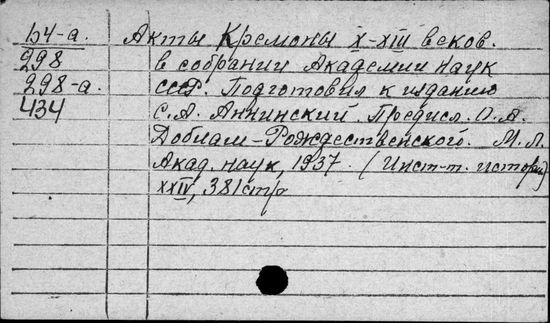 64-а. Акты Кремоны X-XIII веков.
298 в собрании Академии наук
298-а. СССР. Подготовил к изданию
434 С.А. Аннинский. Предисл. О.А.
Добиаш-Рождественской. М. Л.
Акад. наук, 1937. (Инст-т. истории)
XXIV, 381 стр